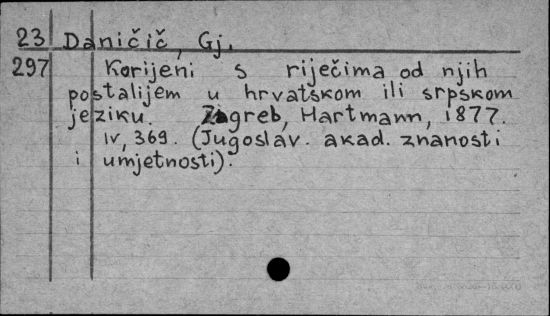 23 Daničič, Gj.
297 Korijeni s riječima od njih
postalijem u hrvatskom ili srpskom
jeziku. Zagreb, Hartmann, 1877.
IV, 369. (Jugoslav. akad. znanosti
i umjetnosti).